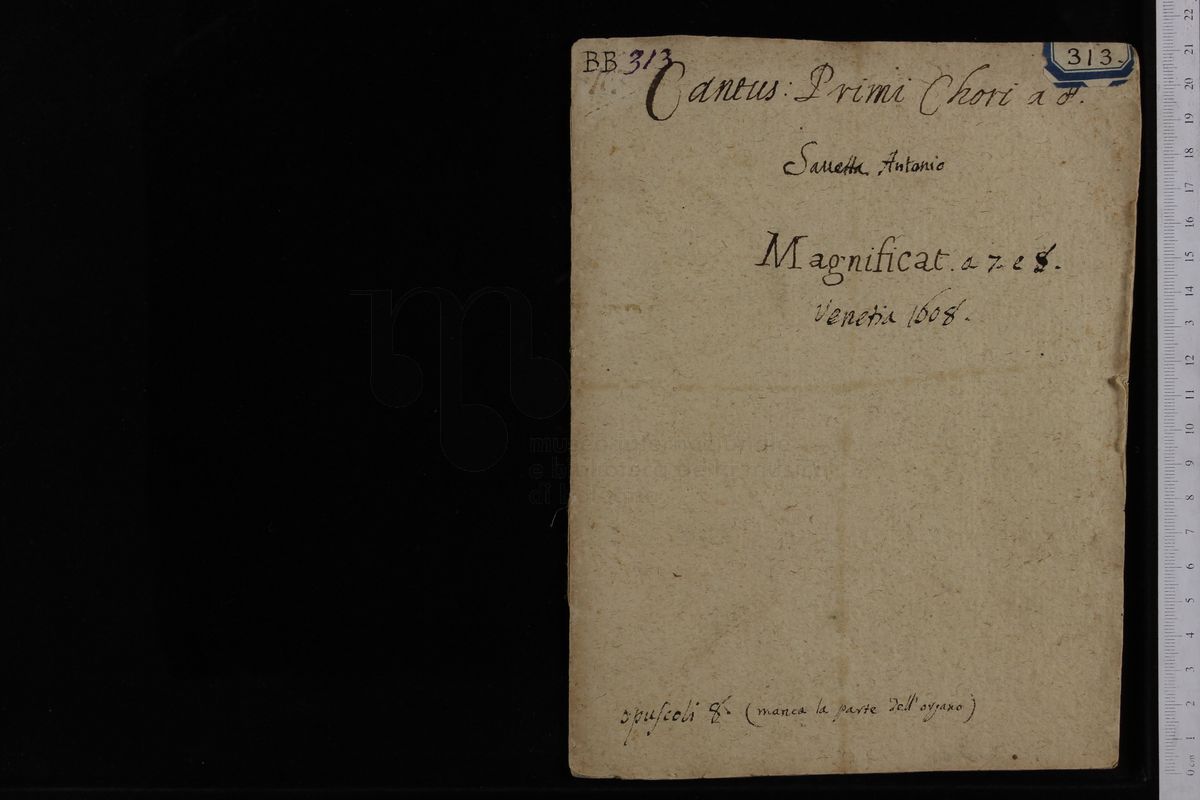 BB 313
313.
Cantus: Primi Chori a 8.
Sauetta Antonio
Magnificat. a 7. e 8.
Venetia 1608.
opuscoli 8. (manca la parte dell'organo)
museo internazionale
e biblioteca della musica
di bologna
0 cm 1 2 3 4 5 6 7 8 9 10 11 12 13 14 15 16 17 18 19 20 21 22